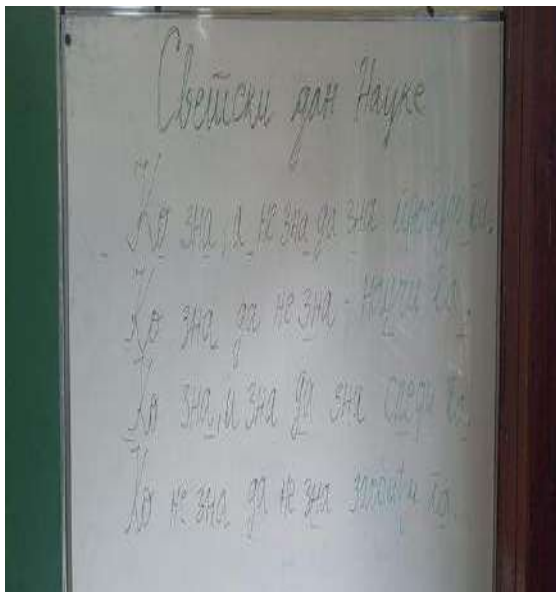 Светски дан Науке
Ко зна, а не зна да зна пробуди га.
Ко зна да не зна - научи га.
Ко зна, и зна да зна следи га
Ко не зна да не зна заобиђи га.